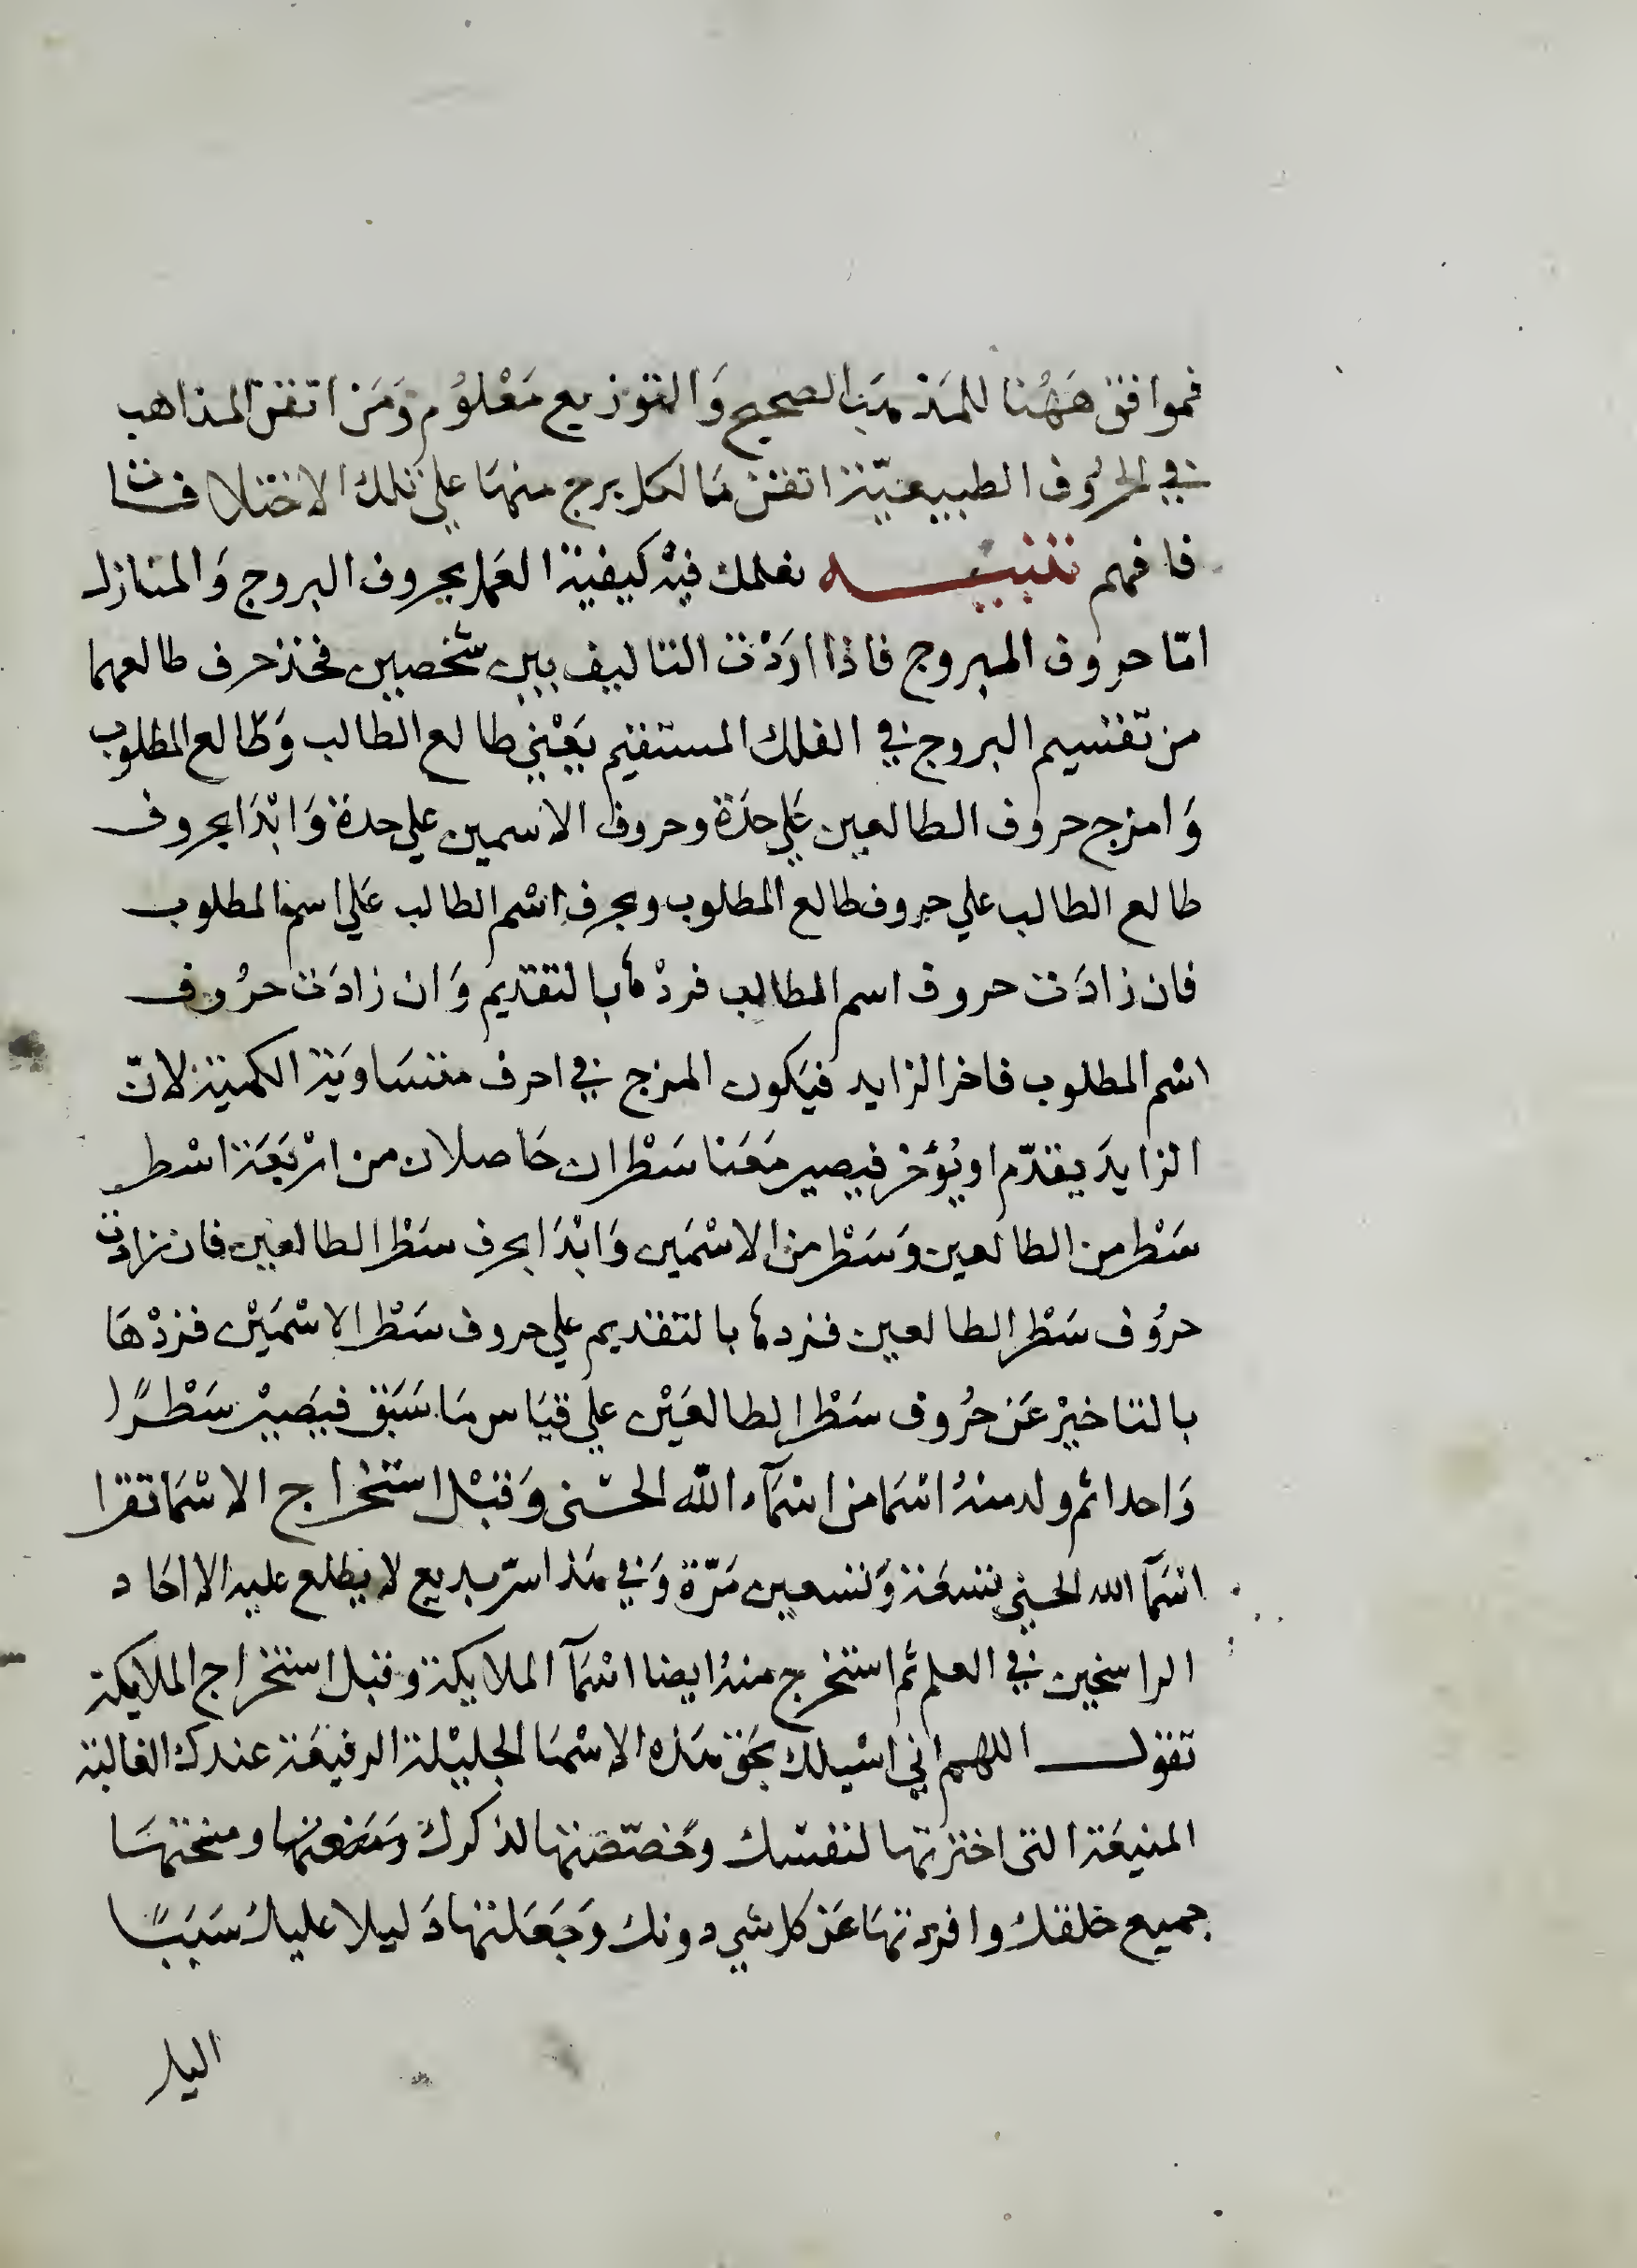 فموافق هَهُنا للمَذهَب الصحيح وَالتوزيع مَعْلوُم وَمَن اتقن المذاهب
في الحرُوف الطبيعيّة اتقن مَا لكل برج منهَا علي تلك الاختلافات
فافهم تنبيـــه نعلمك فيهْ كيفية العمل بحروف البروج وَالمنازل
امّا حروف البروج فاذا ارَدْت التاليف بين شخصين فخذ حرف طالعهما
من تقسيم البروج في الفلك المستقيم يَعْني طالع الطالب وَطالع المطلوب
وَامزج حروف الطالعين عَلي حدَة وحروف الاسمين علي حدة وَابْدَا بحروف
طالع الطالب علي حروف طالع المطلوب وبحرف اسْم الطالب عَلي اسم المطلوب
فان زادَت حروف اسم الطالب فردْها بالتقديم وَان زادَت حرُوف
اسْم المطلوب فاخر الزايد فيَكون المزج في احرف متسَاويَة الكمية لانّ
الزايدَ يقدّم او يُؤخر فيصير مَعَنا سَطْران حَاصلان من ارْبَعَة اسْطر
سَطْر من الطالعين وَسَطْر من الاسْمَين وَابْدَا بحرف سَطْر الطالعين فان زادت
حرُوف سَطْر الطالعين فزدها بالتقديم علي حروف سَطْر الاسْمَيْن فزدْهَا
بالتاخيرْ عَن حُرُوف سَطْر الطالعَيْن علي قيَاس مَا سَبَق فيَصيرْ سَطْرًا
وَاحدا ثم ولد منهُ اسْمَا من اسْمَآء الله الحسْنى وَقبْل استخْراج الاسْمَا تقرا
اسْمَآ الله الحسني تسعَة وَتسعين مَرّة وَفي هَذا سرّ بديع لا يطلع عليه الا احَاد
الراسخين في العلم ثم استخرج منهُ ايضا اسْمَآ الملايكة وقبل استخراج الملايكة
تقول اللهم اني اسْيلك بحَق هَذه الاسْمَا الجليْلة الرفيعَة عندك الغالبة
المنيعَة التي اخترتها لنفسْك وخصّصْتها لذكرك وَمَنعتها ومنحتهَا
جميع خلقك وافردتهَا عَن كل شي دونك وَجَعَلتها دَليلا عليك سَبَبًا
اليك